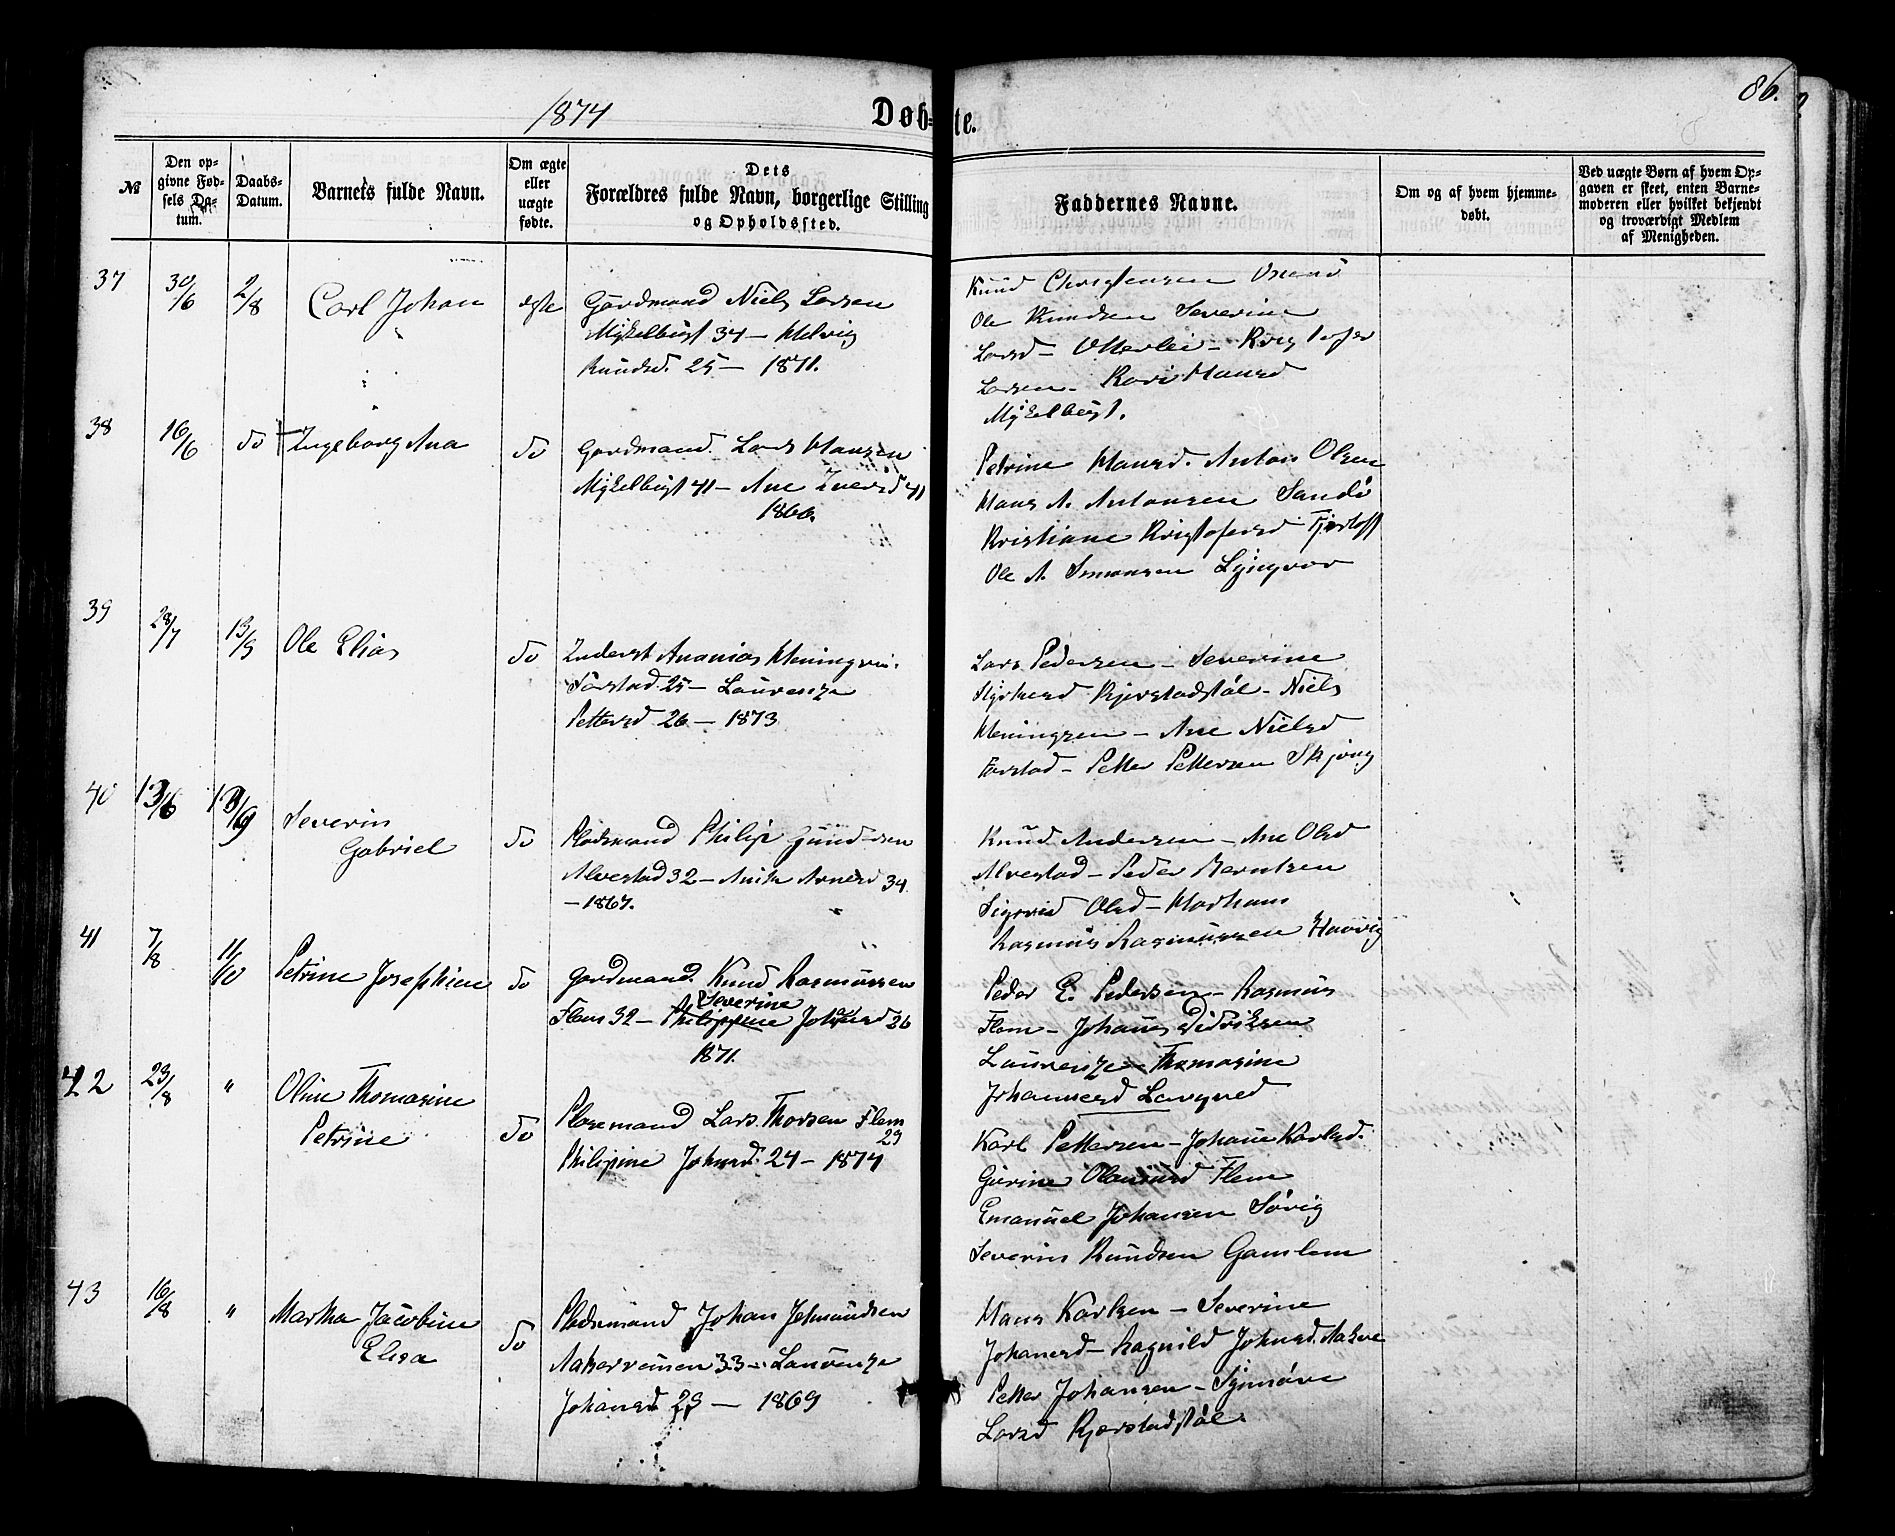 86.
1874
Døb-te.
№
Den op-
givne Fød-
sels Da-
tum.
Daabs-
Datum.
Barnets fulde Navn.
Om ægte
eller
uægte
fødte.
Dets
Forældres fulde Navn, borgerlige Stilling
og Opholdssted.
Faddernes Navne.
Om og af hvem hjemme-
døbt.
Ved uægte Børn af hvem Op-
gaven er skeet, enten Barne-
moderen eller hvilket bekjendt
og troværdigt Medlem
af Menigheden.
37
30/6
2/8
Carl Johan
ægte
Gårdmand Niels Larsen
Mykelbust 34 —
Knudsd. 25 — 1871.
Knud Christensen
Ole Knudsen Severine
Larsd — Otterlei — Kristofer
Larsen — Kari Hansd
Mykelbust.
38
16/6
do
Ingeborg Ana
do
Gardmand. Lars Hansen
Mykelbust 41 — Ane Iversd 41
1866.
Petrine Hansd. Anton Olsen
Hans A. Antonsen Sandø
Kristiane Kristofersd Fjørtoft
Ole A. Simonsen Lyngvor
39
28/7
13/9
Ole Elias
do
Inderst Ananias Heningsen
Farstad 25 — Laurense
Pettersd 26 — 1873
Lars Pedersen — Severine
Kjerstadstøl — Niels
Heningsen — Ane Nielsd
Farstad — Petter Pettersen Skjong
40
13/6
13/9
Severin
Gabriel
do
Pladsmand Philip
Alvestad 32 — Anne Arnesd 34
— 1867.
Knud Andersen — Ane Olsd
Alvestad — Peder Berntsen
Olsd —
Rasmus Rasmussen Haavig
41
7/8
11/10
Petrine Josephine
do
Gardmand. Knud Rasmussen
Severine
Flem 32 — Philippine Johnsd 26
1871.
Peder E. Pedersen — Rasmus
Flem — Johans Didriksen
Laurense — Thomasine
Johannesd Longved
42
23/8
"
Oline Thomasine
Petrine
do
Pladsemand Lars Thorsen Flem
29
Philipine Johnsd. 24 — 1874
Karl Pettersen — Johane Karlsd.
Gurine Olausd Flem
Emanuel Johansen Søvig
Severin Knudsen Gamlem
43
16/8
"
Martha Jacobine
Elisa
do
Pladsemand Johan Jetmundsen
33 — Laurense
Johansd 29 — 1869
Hans Karlsen — Severine
Johansd — Ragnild Johnsd.
Petter Johansen — Synnøve
Larsd Kjerstadstøl